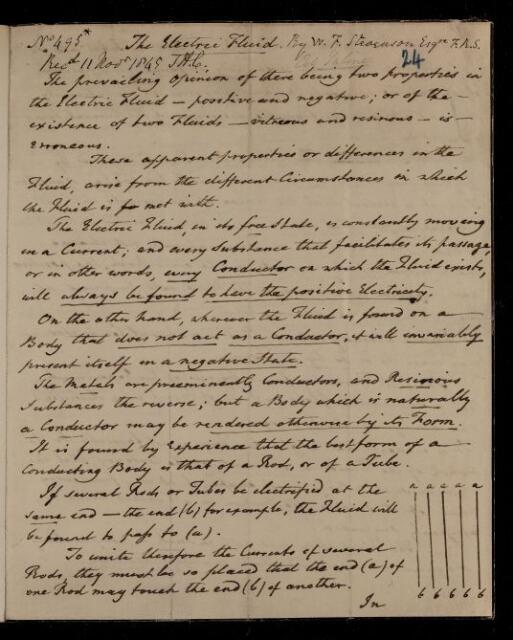 No 495
The Electric Fluid. By W. F. Stevenson Esqre F.R.S.
Recd 11 Novr 1845 24
The prevailing opinion of there being two properties in
the Electric Fluid — positive and negative; or of the —
existence of two Fluids — vitreous and resinous — is —
erroneous.
These apparent properties or differences in the
Fluid, arise from the different Circumstances in which
the Fluid is met with.
The Electric Fluid, in its free State, is constantly moving
in a Current; and every Substance that facilitates its passage,
or in other words, every Conductor on which the Fluid exists,
will always be found to have the positive Electricity.
On the other hand, wherever the Fluid is found on a
Body that does not act as a Conductor, it will invariably
present itself in a negative State.
The Metals are preeminently Conductors, and Resinous
Substances the reverse; but a Body which is naturally
a Conductor may be rendered otherwise by its Form.
It is found by Experience that the best form of a
Conducting Body is that of a Rod, or of a Tube.
If several Rods or Tubes be electrified at the
same end — the end (b) for example, the Fluid will
be found to pass to (a).
To unite therefore the Currents of several
Rods, they must be so placed that the end (a) of
one Rod may touch the end (b) of another.
In
a a a a a
b b b b b